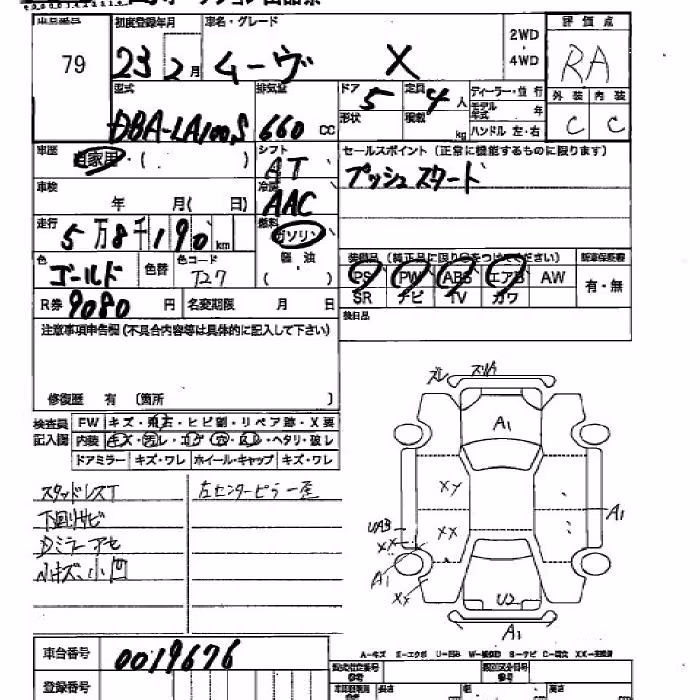 出品番号 初度登録年月 車名・グレード 2WD・4WD 評価点
79 23 2月 ムーヴ X RA
型式 排気量 ドア 5 定員 4人 ディーラー・並行 外装 内装
DBA-LA100S 660CC 形状 積載 kg モデル年式 年 C C
ハンドル 左・右
車歴 自家用・( ) シフト AT セールスポイント(正常に機能するものに限ります)
車検 年 月( 日) 冷房 AAC プッシュスタート
走行 5万8千190km 燃料 ガソリン
軽油
( )
色 ゴールド 色替 色コード T27
装備品(純正品に限り○をつけてください) 新車保証書
PS PW ABS エアB AW 有・無
SR ナビ TV カワ
R券 9080円 名変期限 月 日 後日品
注意事項申告欄(不具合内容等は具体的に記入して下さい)
修復歴 有 〔箇所 〕
検査員記入欄 FW キズ・飛石・ヒビ割・リペア跡・X要
内装 キズ・汚レ・コゲ・穴・・ヘタリ・破レ
ドアミラー キズ・ワレ ホイール・キャップ キズ・ワレ
スタッドレスT 左センターピラー歪
下回サビ
Dミラーアセ
小キズ、小凹
ズレ スリA
A1
XY
XX
UA3
XX
A1
XX
A1
U2
A1
A-キズ E-エクボ U-凹み W-補修跡 S-サビ C-腐食 XX-交換済
車台番号 0019676
登録番号
型式指定番号 参考 類別区分番号 参考
長さ 幅 高さ